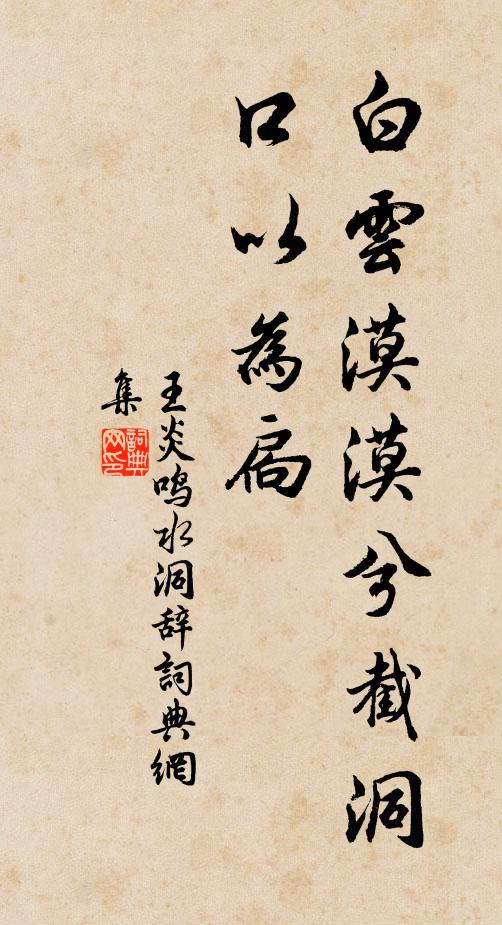 白雲漠漠兮截洞
口以為扃
王炎鸣水洞辞詞典網
集
詞典網印